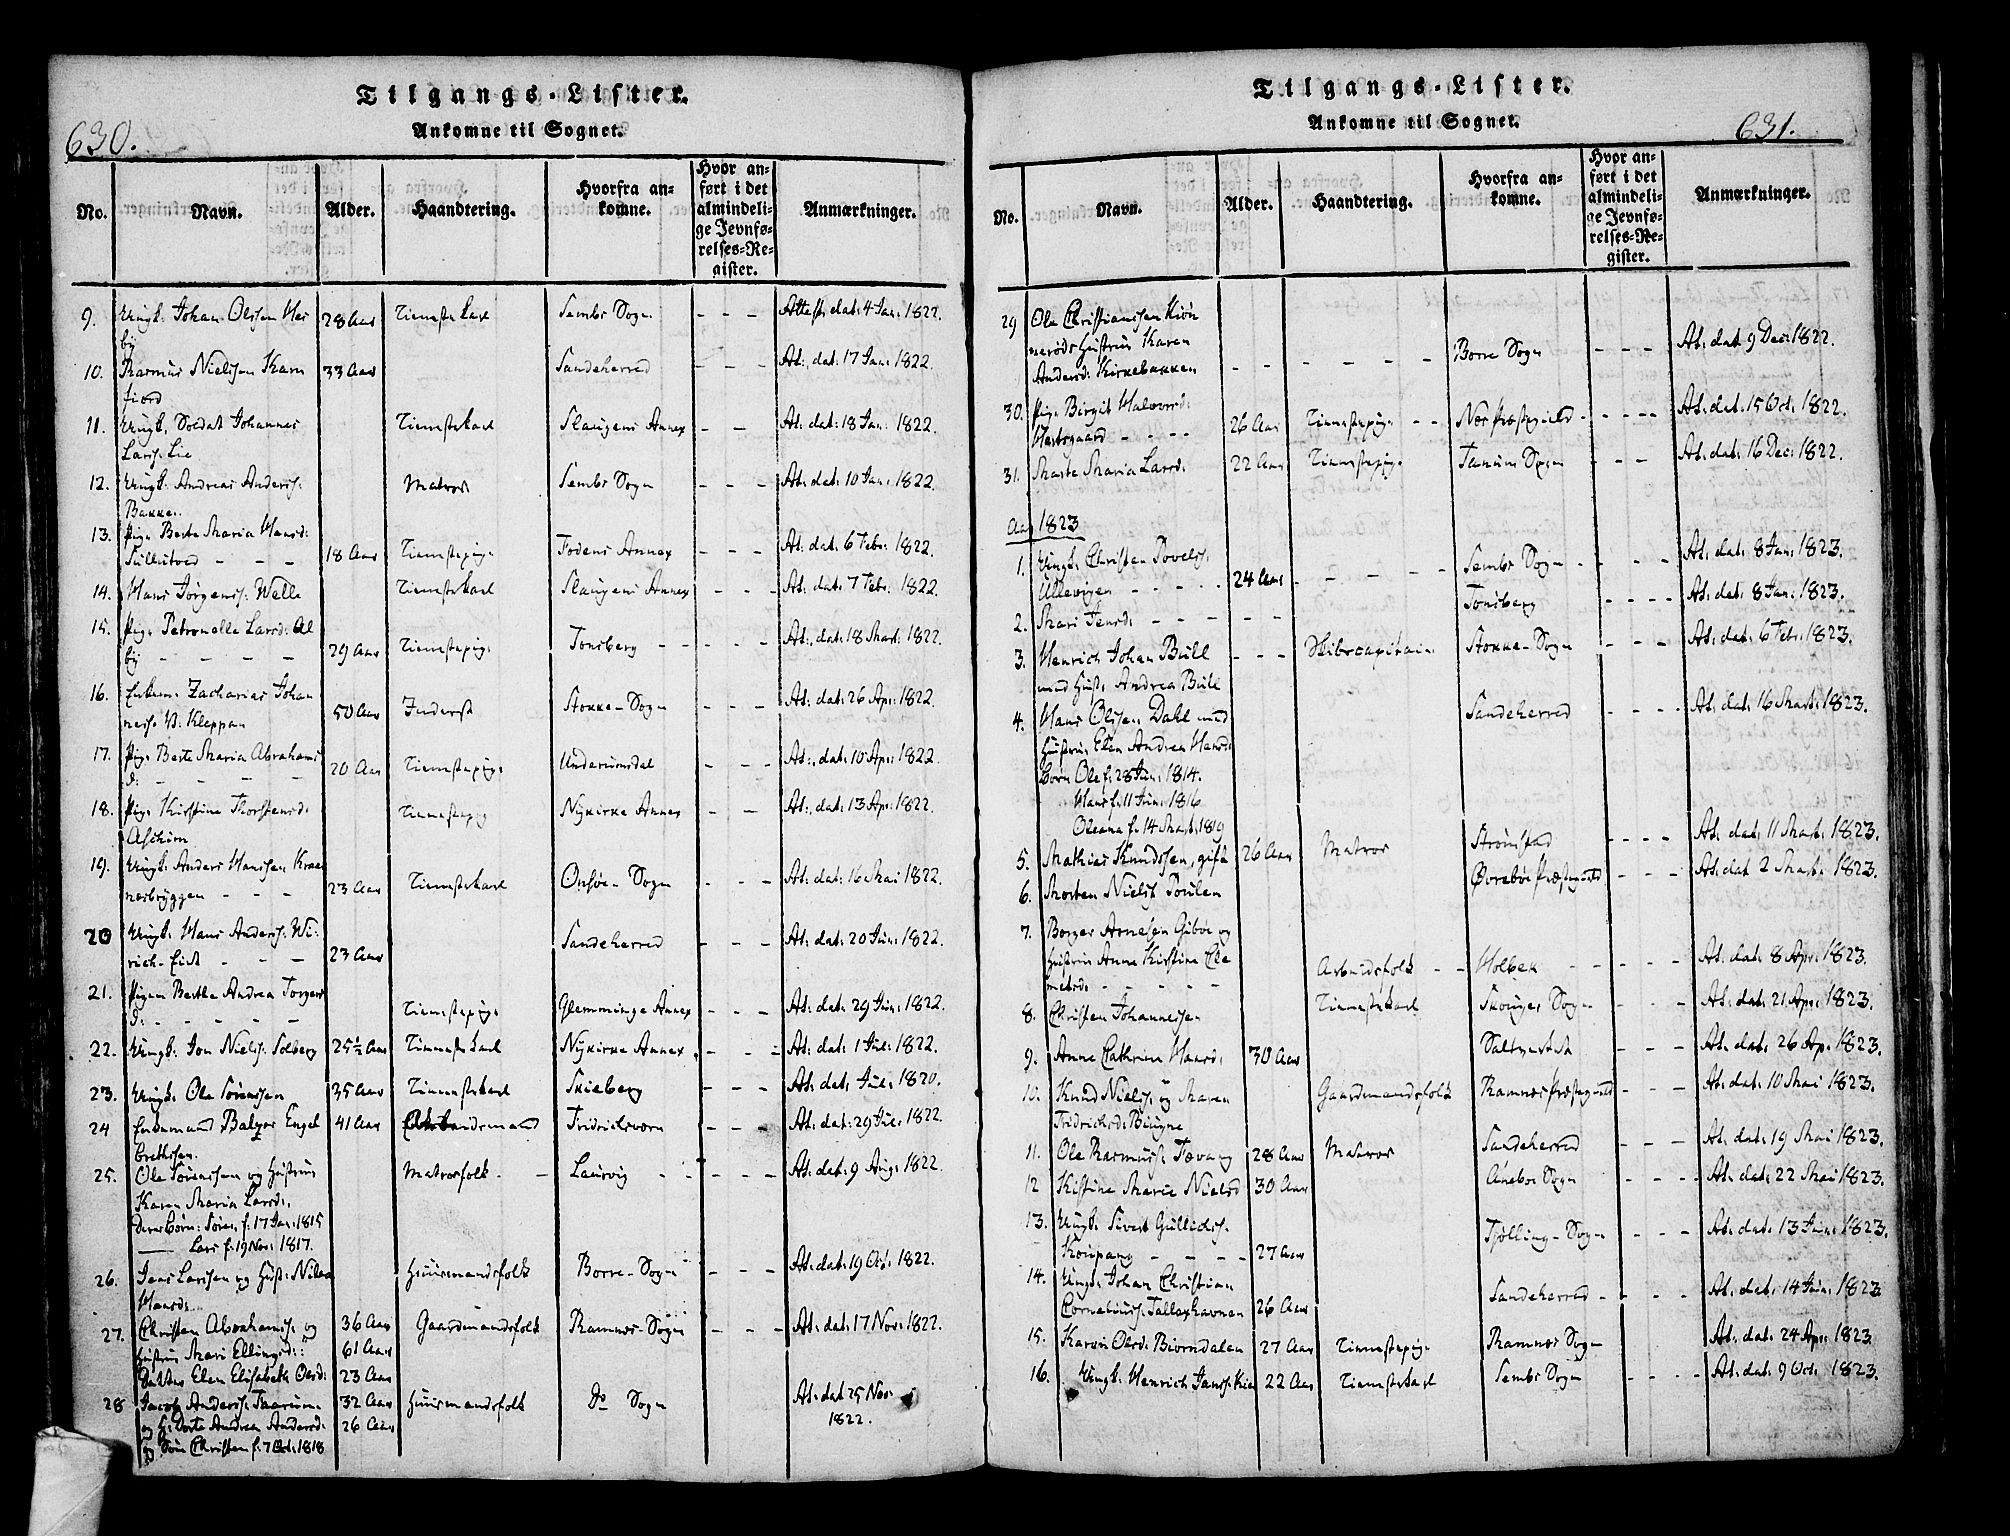 Tilgangs-Lister.
Ankomne til Sognet.
630.
No.
Navn.
Alder.
Haandtering.
Hvorfra an=
komne.
Hvor an=
ført i det
almindeli=
ge Jevnfø=
relses=Re=
gister.
Anmærkninger.
9. Ungk. Johan Olssen 28 Aar Tienestekarl Sembs Sogn - - - Attest. dat: 4 Jan. 1822.
by
10. Rasmus Nielsen 33 Aar Sandeherred - - - At: dat: 17 Jan: 1822.
11. Ungk. Soldat Johannes Tienestekarl Slaugens Annex - - At: dat: 18 Jan: 1822.
Larss. Lie
12. Ungk. Andreas Anderss. Matros Sembs Sogn - - - At: dat: 10 Jan: 1822.
Bakke.
13. Pige Berte Maria Hansd:
- - - 18 Aar Tienestepige Annex - - - At: dat: 6 Febr: 1822.
14. Hans Jørgenss: Welle Tienestekarl Slaugens Annex - - - At: dat: 7 Febr: 1822.
15. Pige Petronelle Larsd: Al
by - - - - 29 Aar Tienestepige Tonsberg - - - - At: dat: 18 Mart: 1822.
16. Zacharias Johan
Kleppan 50 Aar Inderst Stokke-Sogn - - - At: dat: 26 Apr: 1822.
17. Pige Berte Maria Abrahams
d: - - - - 20 Aar Tienestepige Underumsdal - - - At: dat: 10 Apr: 1822.
18. Pige Kirstine Thorstensd: Tienestepig Nykirke Annex - - At: dat: 13 Apr: 1822.
19. Ungk. Anders Hanssen
- - - 23 Aar Tienestekarl Onsøe- Sogn - - - At: dat: 16 Mai 1822.
20 Ungk: Hans Anderss: Wi=
- - - 23 Aar Sandeherred - - - At: dat: 20 Jun: 1822.
21. Pigen Berthe Andrea Torgers
d: - - - - Tienestepige Glemminge Annex - - - At: dat: 29 Jun: 1822.
22. Ungk: Jon Nielss. Solberg 25½ Aar Tienestekarl Nykirke Annex - - - At: dat: 1 Jul: 1822.
23. Ungk: Ole Sørenssen 35 Aar Tienestekarl Skieberg - - - At: dat: Jul: 1820.
24 Enkemand Balzer Engel 41 Aar Fridrichsværn - - - At: dat: 29 Jul: 1822.
brethsen.
25. Ole Sørenssen og Hustrue Matrosfolk - - Laurvig - - - - - At: dat: 9 Aug: 1822.
Karen Maria Larsd:
Deres Børn: Søren f: 17 Jan: 1815
Lars f: 19 Nov: 1817.
26. Larssen og Hust: Huusmandsfolk Borre- Sogn - - - At: dat: 19 Oct: 1822.
Hansd:
27. Christen Abrahamss: og 36 Aar Gaardmandsfolk Ramnæs-Sogn - - - At: dat: 17 Nov: 1822.
Hustrue Mari Ellingsd: 61 Aar
Datter Elen Elisabeth Olsd: 23 Aar
28 Jacob Anderss: 32 Aar Huusmandsfolk Do Sogn At: dat 25 Nov:
og H: Dorte Andrea Andersd: 26 Aar 1822.
og Søn Christen f: 7 Oct: 1818
Tilgangs-Lister.
Ankomne til Sognet.
631.
No.
Navn.
Alder.
Haandtering.
Hvorfra an=
komne.
Hvor an=
ført i det
almindeli=
ge Jevnfø=
relses=Re=
gister.
Anmærkninger.
29 Ole Christianssen Kiøn
nerøds Hustrue Karen Borre Sogn - - - At: dat 9 Dec: 1822.
Andersd: Kirkebakken - - - - - - -
30. Pige Birgit Halvorsd:
- - - - 26 Aar Tienestepige - - Næs Præstegield - - - - - At: dat: 15 Oct: 1822.
31. Marte Maria Larsd: 22 Aar Tienestepige Tanum Sogn - - - At: dat: 16 Dec: 1822.
Aar 1823
1. Ungk. Christen Povelss:
Ullevigen - - - - 24 Aar - - - - - Sembs Sogn - - - - At: dat: 8 Jan: 1823.
2. Mari Jensd: - - - - - Tonsberg - - - - At: dat: 8 Jan: 1823.
3. Henrich Johan Bull - - - Skibscapitain Stokke- Sogn - - - At: dat: 6 Febr: 1823.
med Hust: Andrea Bull
4. Hans Olssen Dahl med Sandeherred - - - - At: dat: 16 Mart: 1823.
Hustrue Elen Andrea Hansd:
born Ole f: 28 Jun: 1814.
Hans f: 11 Jun: 1816
Oleana f: 14 Mart: 1819
5. Mathias Knudssen, gift 26 Aar Matros Strømstad - - - At: dat: 11 Mart: 1823.
6. Morten Nielss. Øvrebøe Præstegield - - - At: dat 2 Mart: 1823.
7. Borger Arnesen Gibøe og
Hustrue Anne Kirstine Cle Arbeidsfolk - - Holbek - - - - - At: dat: 8 Apr: 1823.
metsd: - - - - -
8. Christen Johannessen Tienestekarl Skouger Sogn - - - At: dat: 21 Apr: 1823.
9. Anne Cathrine Hansd: 30 Aar - - - At: dat: 26 Ap: 1823.
10. Knud Nielss: og Maren Gaardmandsfolk Ramnæs Præstegield - - - At: dat: 10 Mai 1823.
Fridrichsd: Biugne
11. Ole Rasmuss: 28 Aar Matros Sandeherred - - - At: dat: 19 Mai 1823.
12 Kistine Marie Nielsd 30 Aar Anebøe Sogn - - - - At: dat: 22 Mai 1823.
13. Ungk: Sivert Gullichss:
Koupang - - - - 27 Aar Tjølling- Sogn - - - At: dat: 13 Jun: 1823.
14. Ungk: Johan Christian
Corneliuss: Tallaxhavnen 26 Aar Sandeherred - - - - At: dat: 14 Jun: 1823
15. Karen Olsd: Biørndalen 27 Aar Tienestepige Ramnæs Sogn At: dat: 24 Apr: 1823.
16. Ungk. Henrich Janss: 22 Aar Tienestekarl Sembs Sogn - - - - At: dat: 9 Oct: 1823.